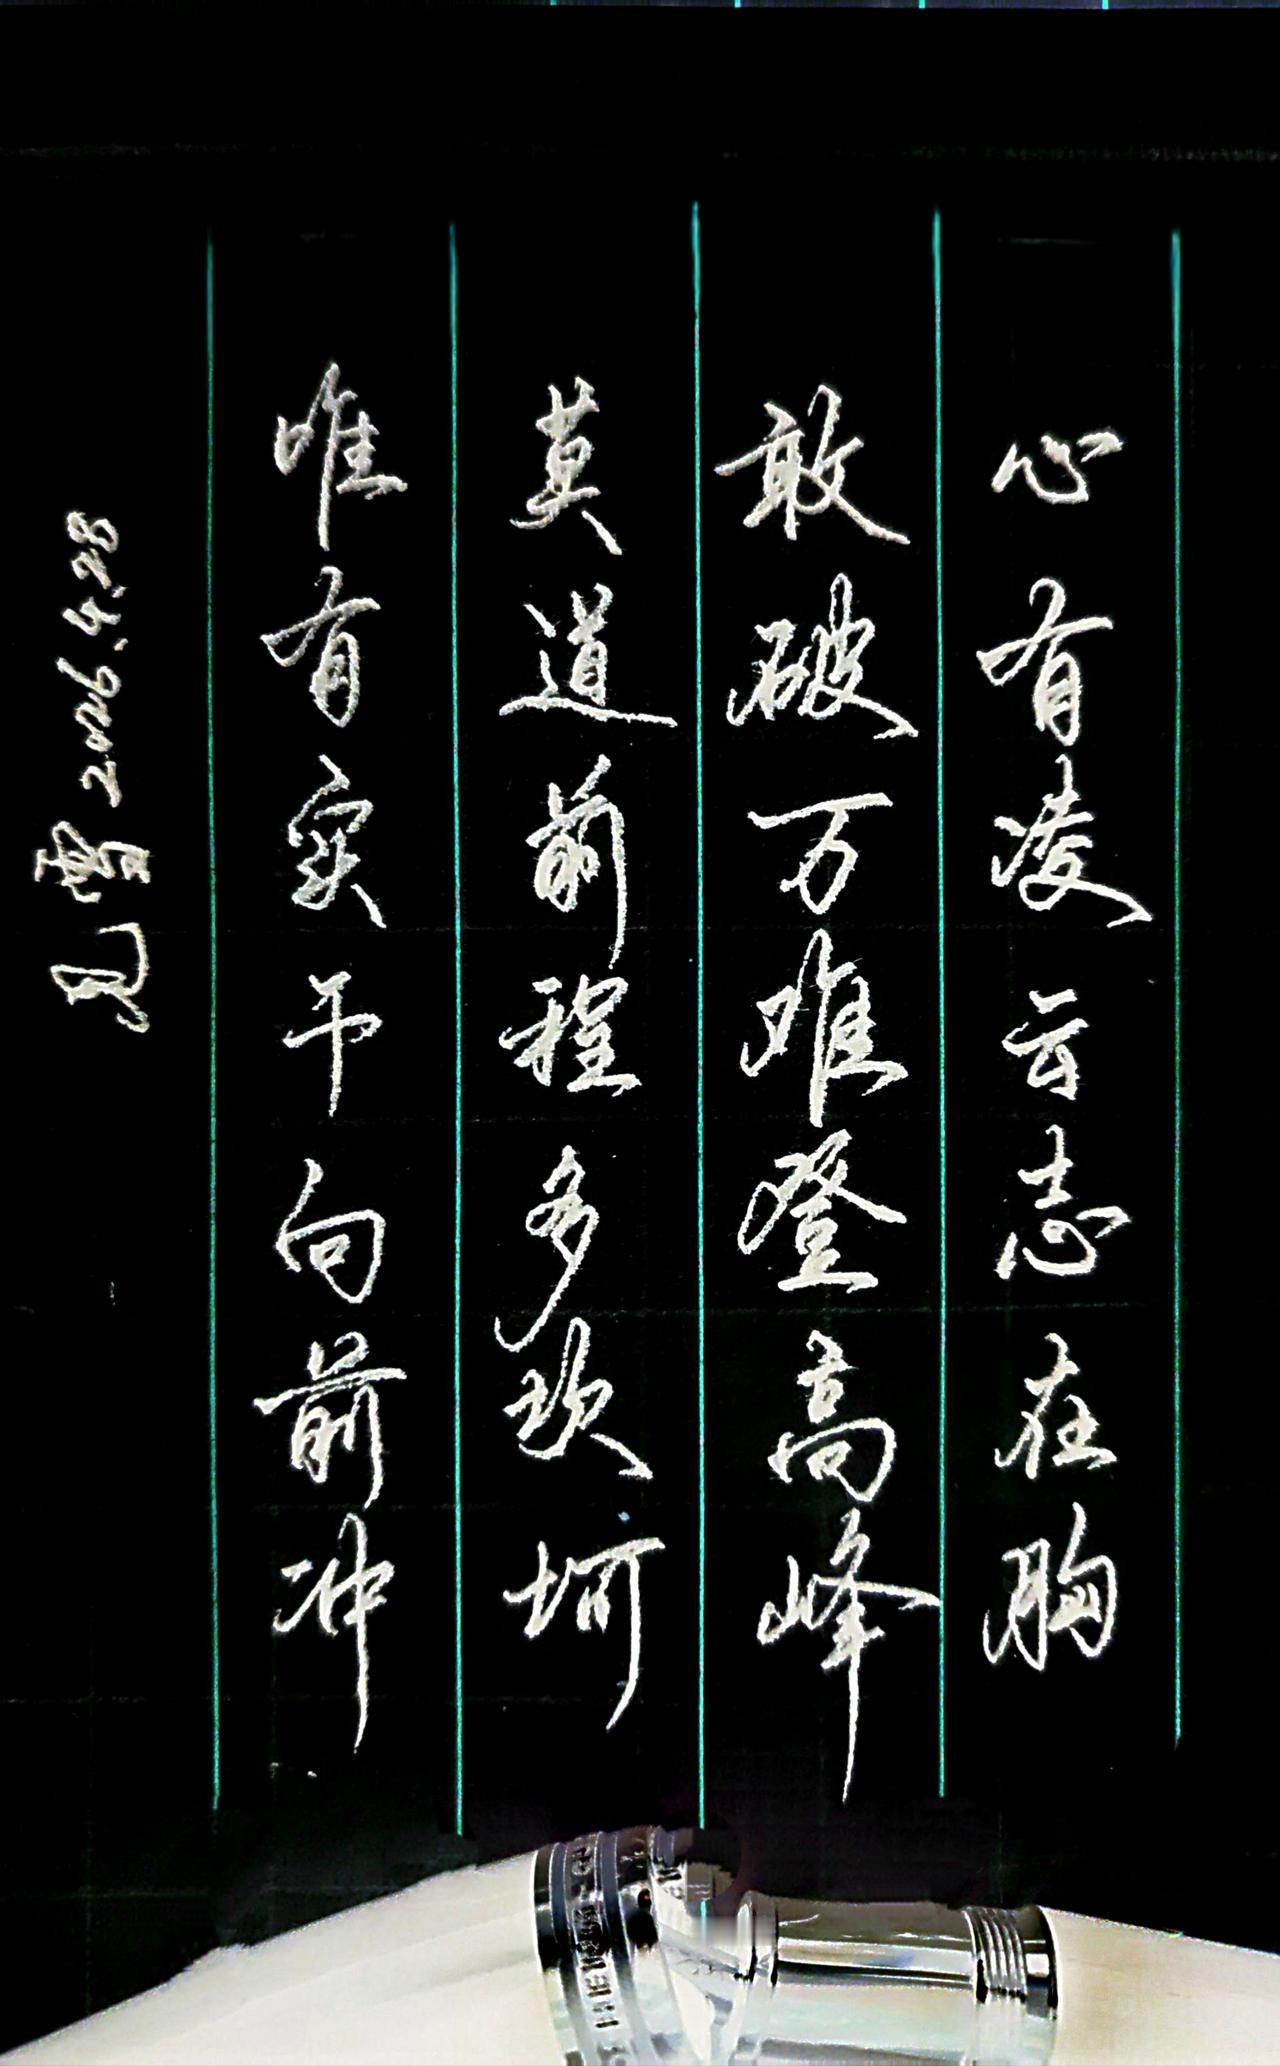 心有凌云志在胸
敢破万难登高峰
莫道前程多坎坷
唯有实干向前冲
见雪 2026.4.28